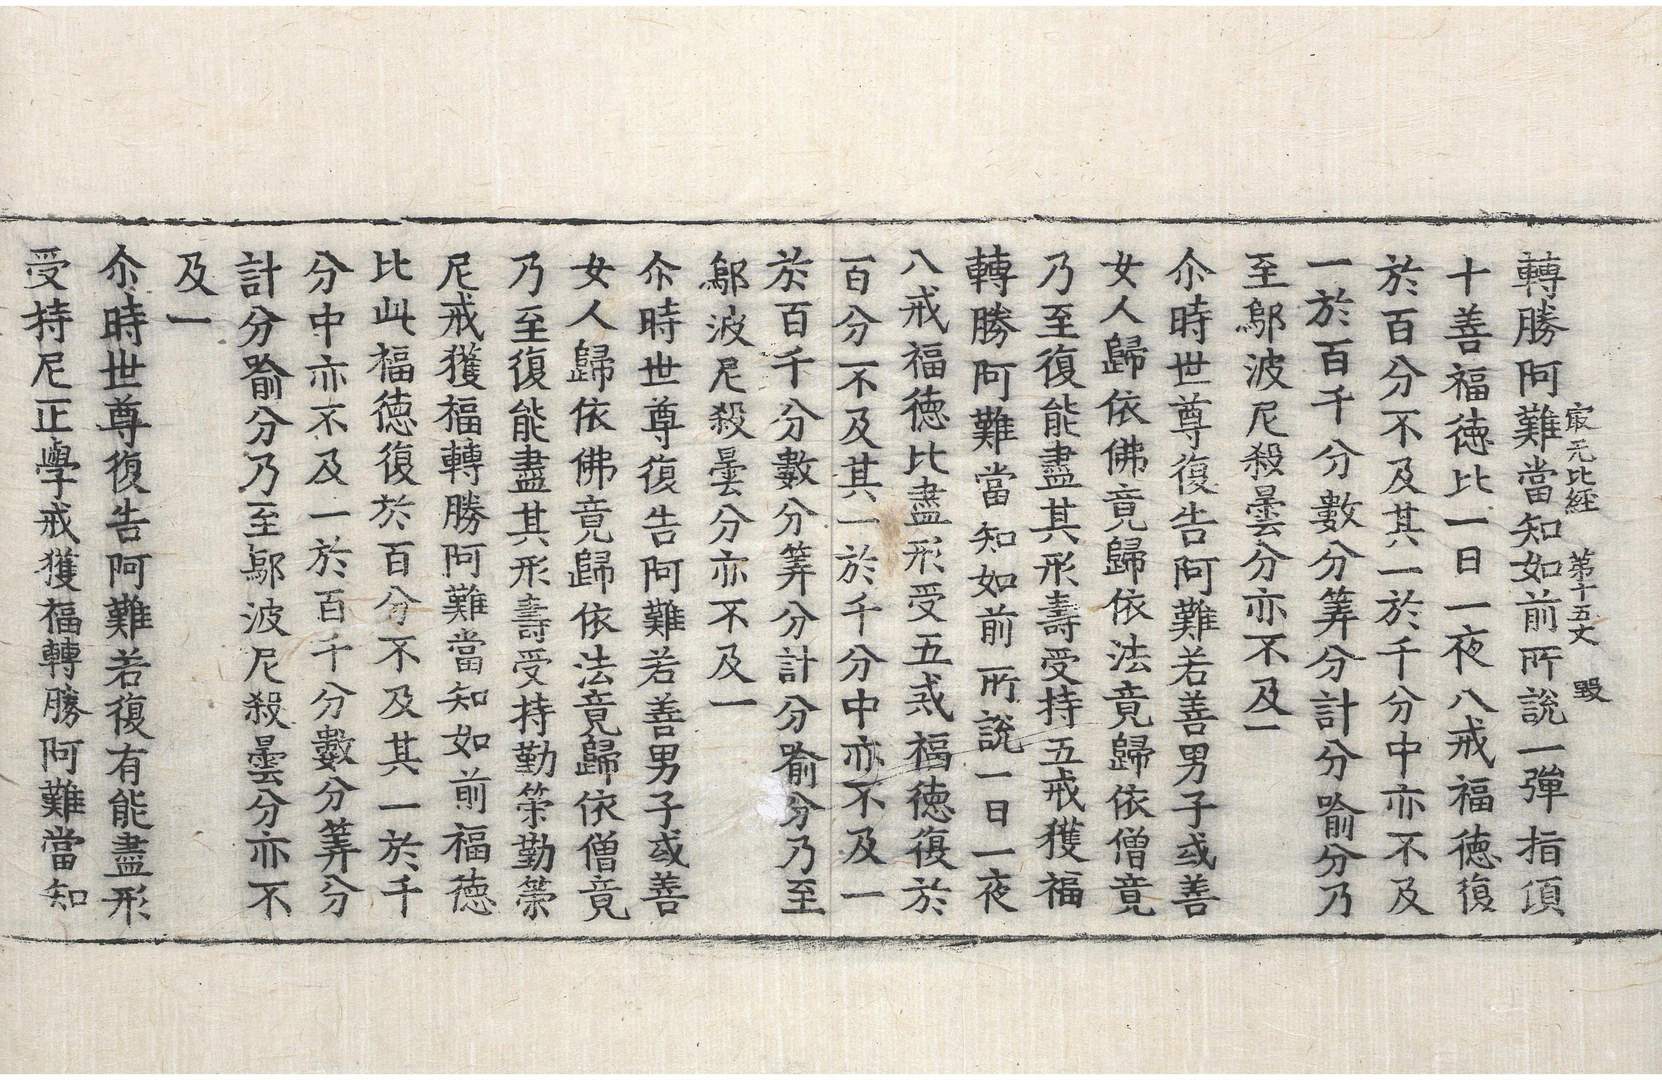 冣无比經　第十五丈　毀
轉勝阿難當知如前所說一彈指頃
十善福德比一日一夜八戒福德復
於百分不及其一於千分中亦不及
一於百千分數分筭分計分喻分乃
至鄔波尼殺曇分亦不及一
尒時世尊復告阿難若善男子或善
女人歸依佛竟歸依法竟歸依僧竟
乃至復能盡其形壽受持五戒獲福
轉勝阿難當知如前所說一日一夜
八戒福德比盡形受五戒福德復於
百分不及其一於千分中亦不及一
於百千分數分筭分計分喻分乃至
鄔波尼殺曇分亦不及一
尒時世尊復告阿難若善男子或善
女人歸依佛竟歸依法竟歸依僧竟
乃至復能盡其形壽受持勤策勤策
尼戒獲福轉勝阿難當知如前福德
比此福德復於百分不及其一於千
分中亦不及一於百千分數分筭分
計分喻分乃至鄔波尼殺曇分亦不
及一
尒時世尊復告阿難若復有能盡形
受持尼正學戒獲福轉勝阿難當知